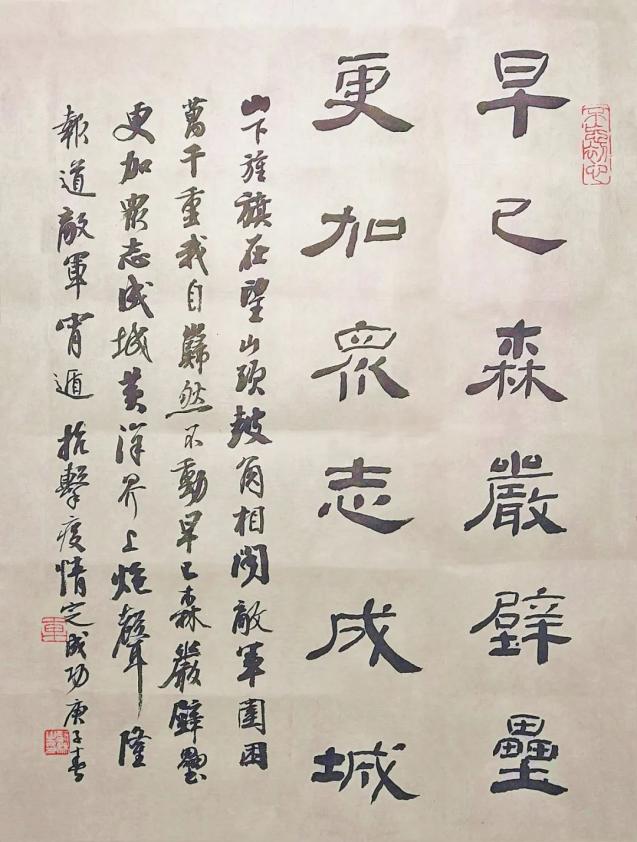 不忘初心
早已森嚴壁壘
更加眾志成城
山下旌旗在望山頭鼓角相聞敵軍圍困
萬千重我自巋然不動早已森嚴壁壘
更加眾志成城黃洋界上炮聲隆
報道敵軍宵遁抗擊疫情定成功庚子春